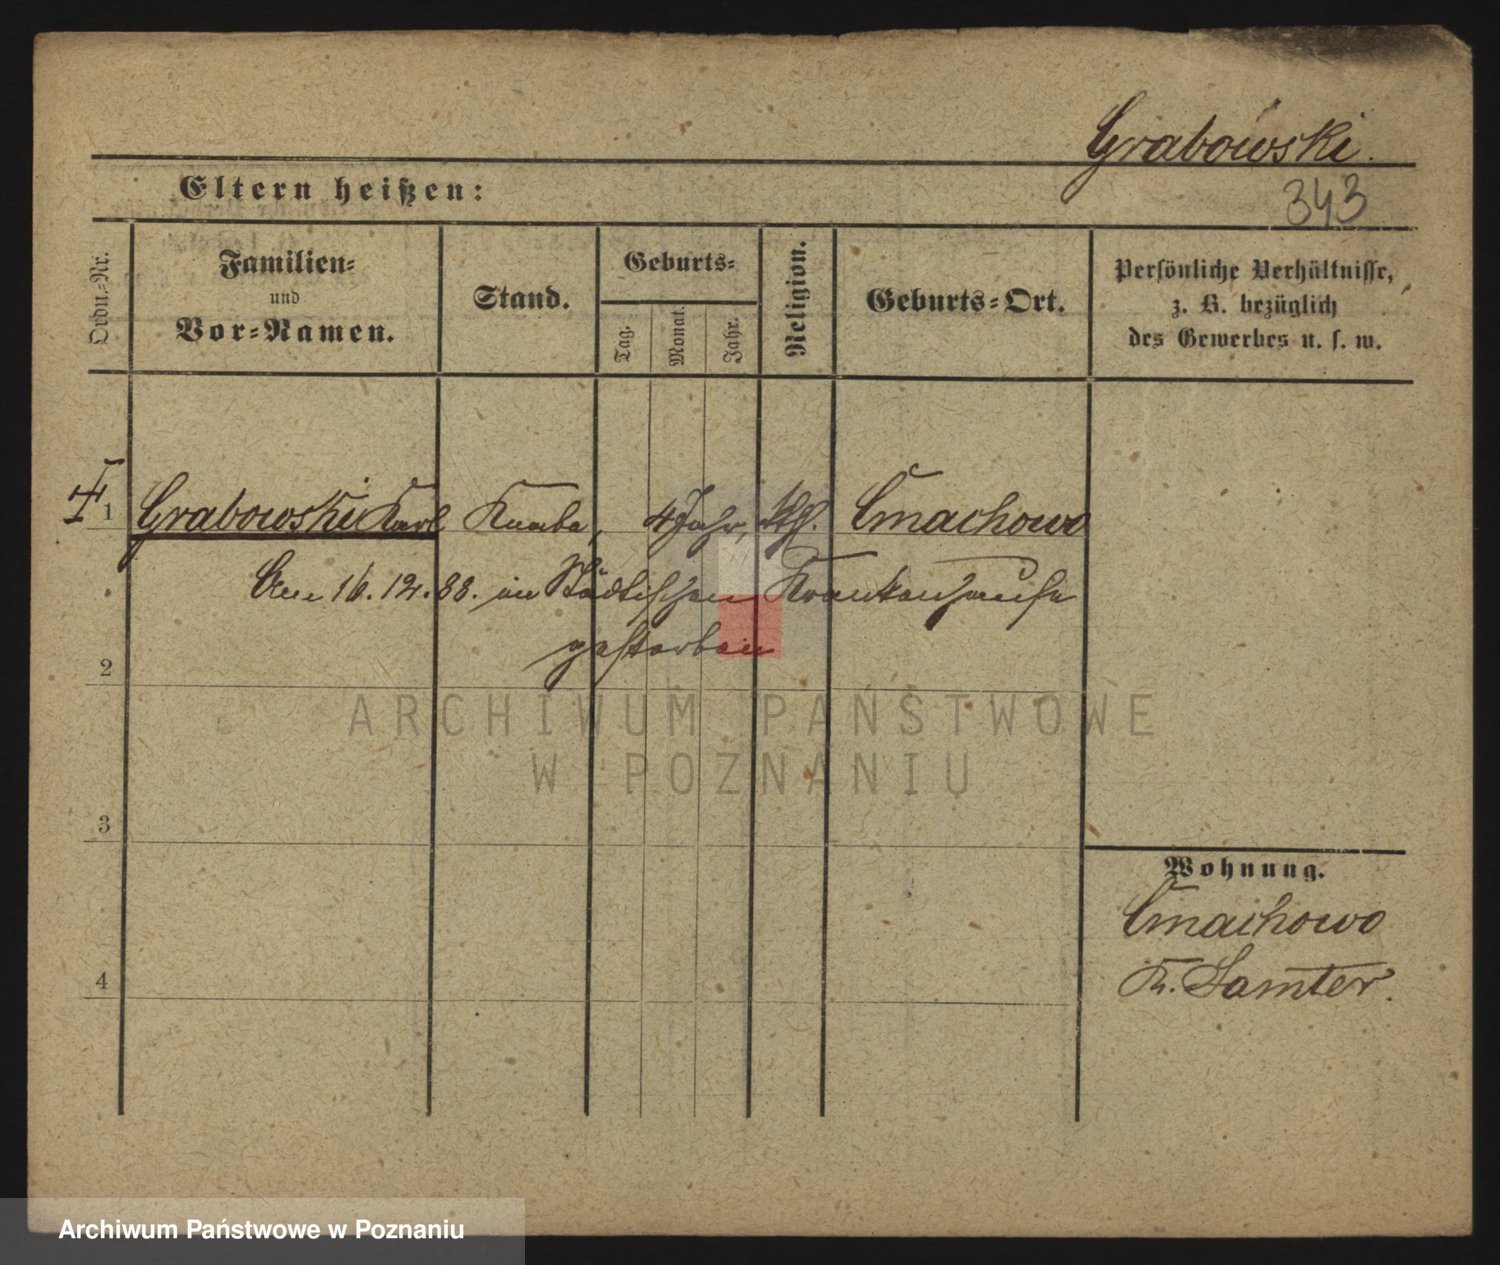 Grabowski.
Eltern heißen:
343
Ordn.-Nr.
Familien-
und
Vor-Namen.
Stand.
Geburts-
Tag.
Monat.
Jahr.
Religion.
Geburts-Ort.
Persönliche Verhältnisse,
z. B. bezüglich
des Gewerbes u. s. w.
1 Grabowski Karl Knabe, 4 Jahr, kth. Cmachowo
Am 16.12.88. im Städtischen Krankenhause
gestorben
2
ARCHIWUM PAŃSTWOWE
W POZNANIU
3
Wohnung.
Cmachowo
K. Samter.
4
Archiwum Państwowe w Poznaniu